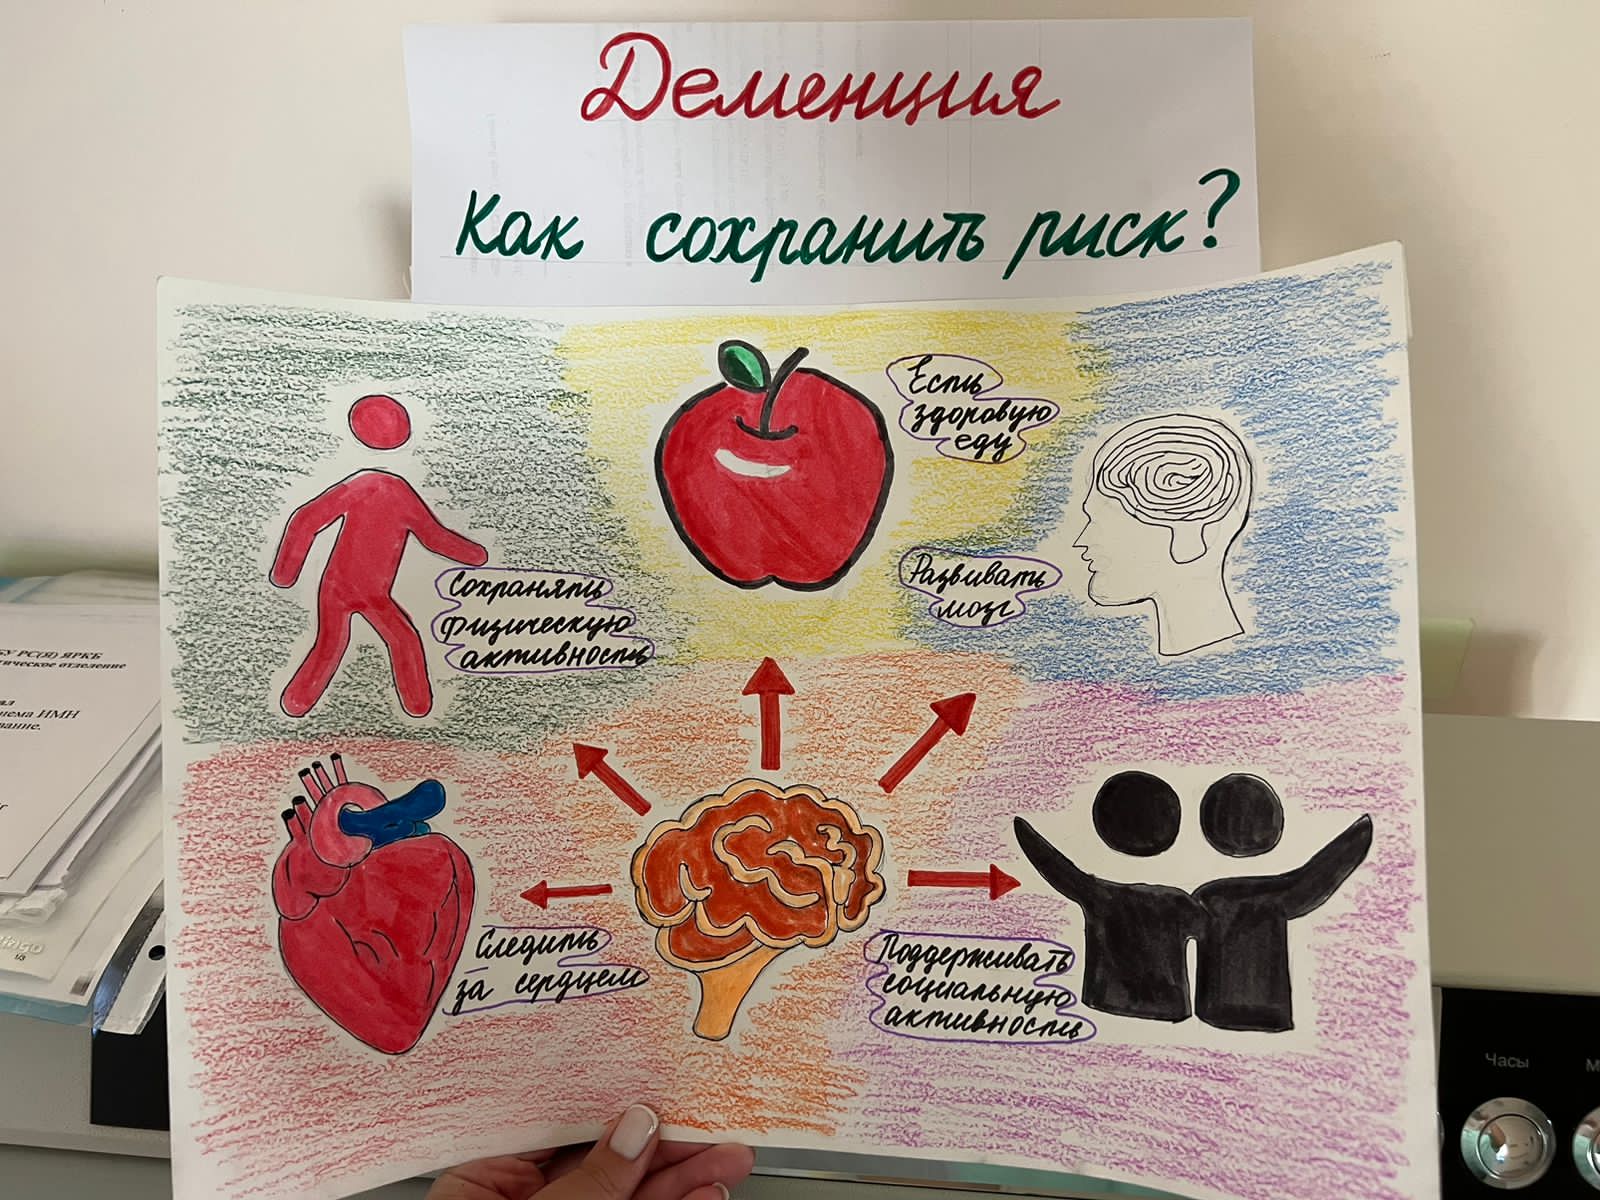 Деменция
Как сохранить риск?
Есть
здоровую
еду
Развивать
мозг
Сохранять
физическую
активность
Следить
за сердцем
Поддерживать
социальную
активность
БУ РС(Я) ЯРКБ
тическое отделение
ИМН
1/3
Часы